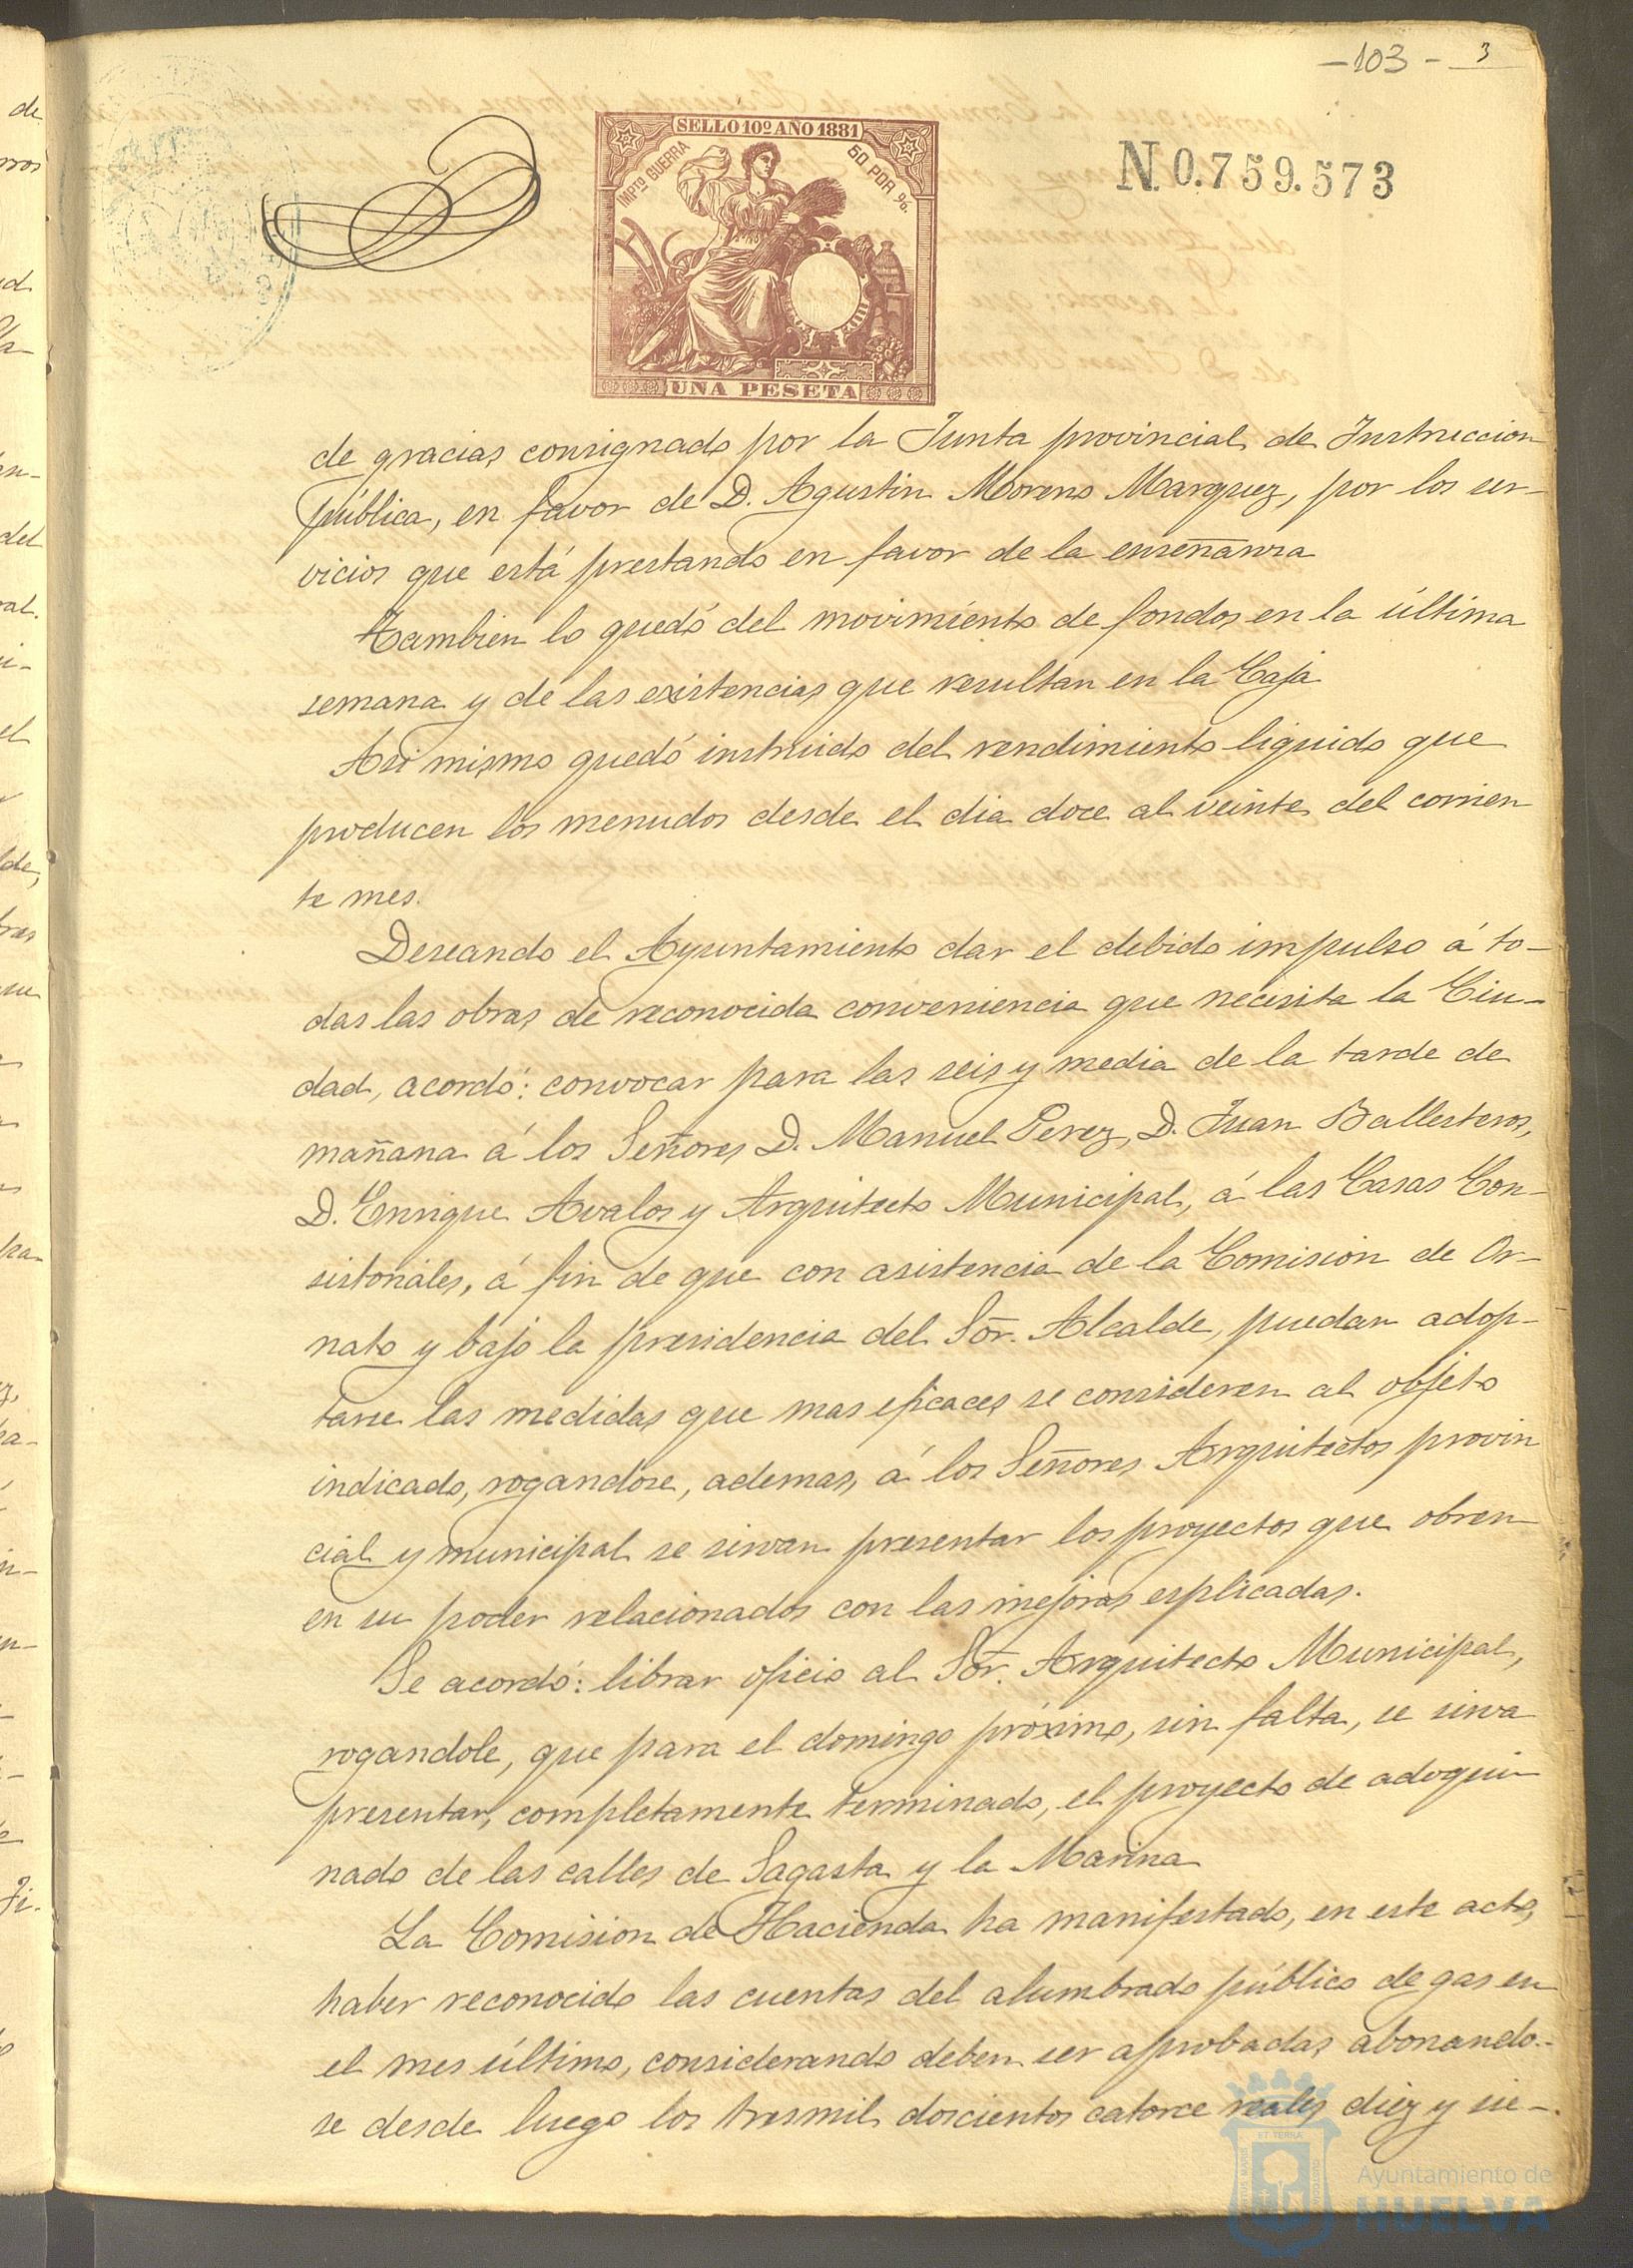 -103- 3
SELLO 10º AÑO 1881
IMPTO GUERRA
50 POR %.
N.0.759.573
UNA PESETA
de gracias consignado por la Junta provincial de Instruccion
pública, en favor de D. Agustin Moreno Marquez, por los ser-
vicios que está prestando en favor de la enseñanza
Tambien lo quedó del movimiento de fondos en la última
semana y de las existencias que resultan en la Caja
Asi mismo quedó instruido del rendimiento liquido que
producen los menudos desde el dia doce al veinte del corrien
te mes.
Deseando el Ayuntamiento dar el debido impulso á to-
das las obras de reconocida conveniencia que necesita la Ciu-
dad, acordó: convocar para las seis y media de la tarde de
mañana á los Señores D. Manuel Perez, D. Juan Ballesteros,
D. Enrique Avalos y Arquitecto Municipal, á las Casas Con-
sistoriales, á fin de que con asistencia de la Comision de Or-
nato y bajo la presidencia del Sor. Alcalde, puedan adop-
tarse las medidas que mas eficaces se consideren al objeto
indicado, rogandose, ademas, á los Señores Arquitectos provin
cial y municipal se sirvan presentar los proyectos que obren
en su poder relacionados con las mejoras esplicadas.
Se acordó: librar oficio al Sor. Arquitecto Municipal,
rogandole, que para el domingo próximo, sin falta, se sirva
presentar, completamente terminado, el proyecto de adoqui-
nado de las calles de Sagasta y la Marina
La Comision de Hacienda ha manifestado, en este acto,
haber reconocido las cuentas del alumbrado público de gas en
el mes último, considerando deben ser aprobadas abonando-
se desde luego los tresmil doscientos catorce reales diez y sie-
Ayuntamiento de
HUELVA